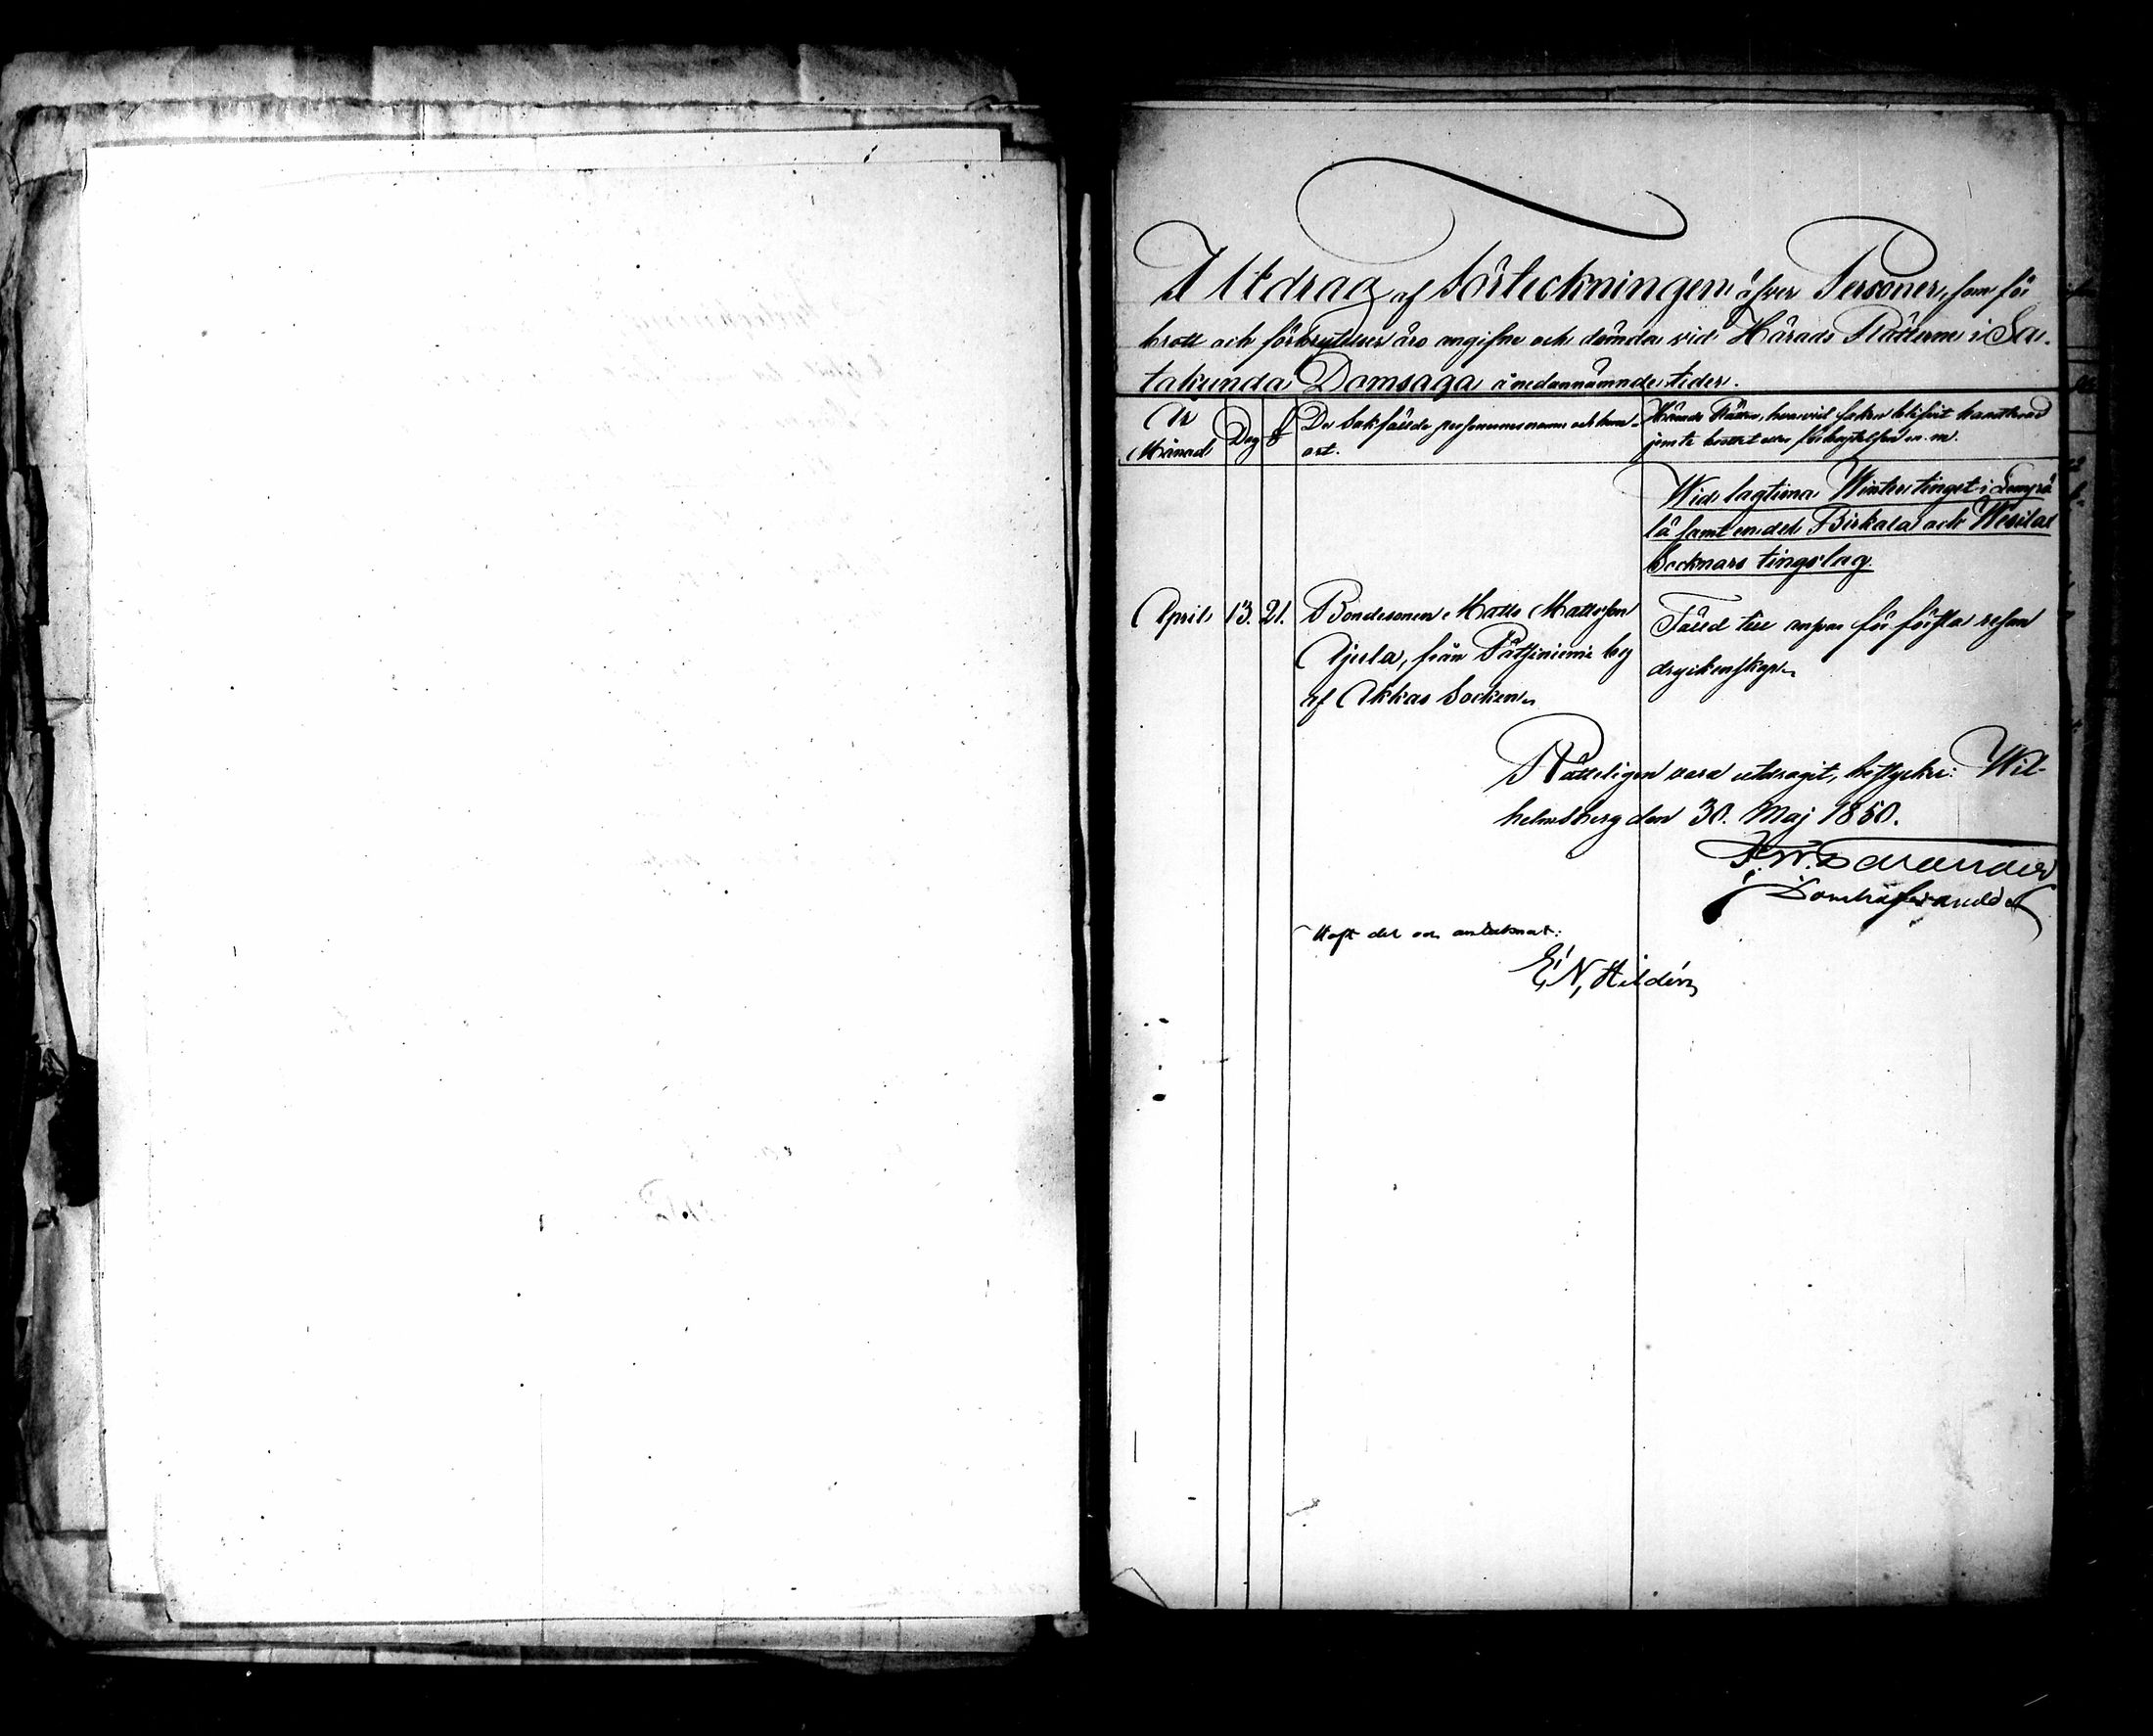 Utdrag af Förteckningen öfver Personer, som för
brott och förbrytelser äro angifne och dömda vid Härads Rätterne i Sa-
takunda Domsaga å nedannämnde tider.
År
Månad
Dag
§
De Sakfällde personernes namn och hem-
ort.
Härads Rätten, hvarvid saken blifvit handterad
jemte brottet eller förbrytelsen m. m.
Wid lagtima Wintertinget i Lempä-
lä samt en del Birkala och Wesilax
Socknars tingslag.
April 13. 21. Bondesonen Matts Mattsson
Ajula, från by
af Akkas Socken.
Fälld till ansvar för första resan
dryckenskap.
Rätteligen vara utdragit, bestyrker: Wil-
helmsberg den 30. Maj 1850.
Domhafvande
det är antecknat:
E. N. Hildén